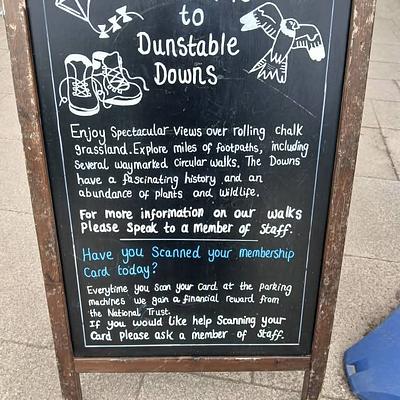 to
Dunstable
Downs
Enjoy Spectacular views over rolling chalk
grassland. Explore miles of footpaths, including
Several waymarked circular walks. The Downs
have a fascinating history and an
abundance of plants and wildlife.
For more information on our walks
Please Speak to a member of Staff.
Have you Scanned your membership
Card today?
Everytime you Scan your Card at the parking
machines we gain a financial reward from
the National Trust.
If you would like help Scanning your
Card please ask a member of Staff.